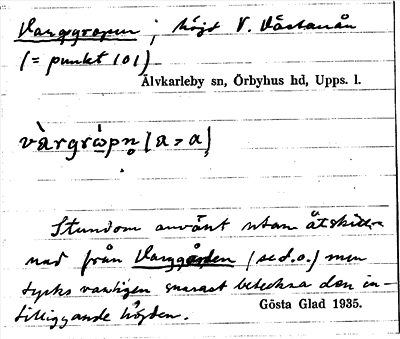 Varggropen ; höjd V. Västanån
(= punkt 101)
Älvkarleby sn, Örbyhus hd, Upps. l.
vàrgrὼpn̥ (a > a)
Stundom använt utan åtskill-
nad från Varggården (se d.o.) men
tycks vanligen snarast beteckna den in-
tilliggande höjden.
Gösta Glad 1935.